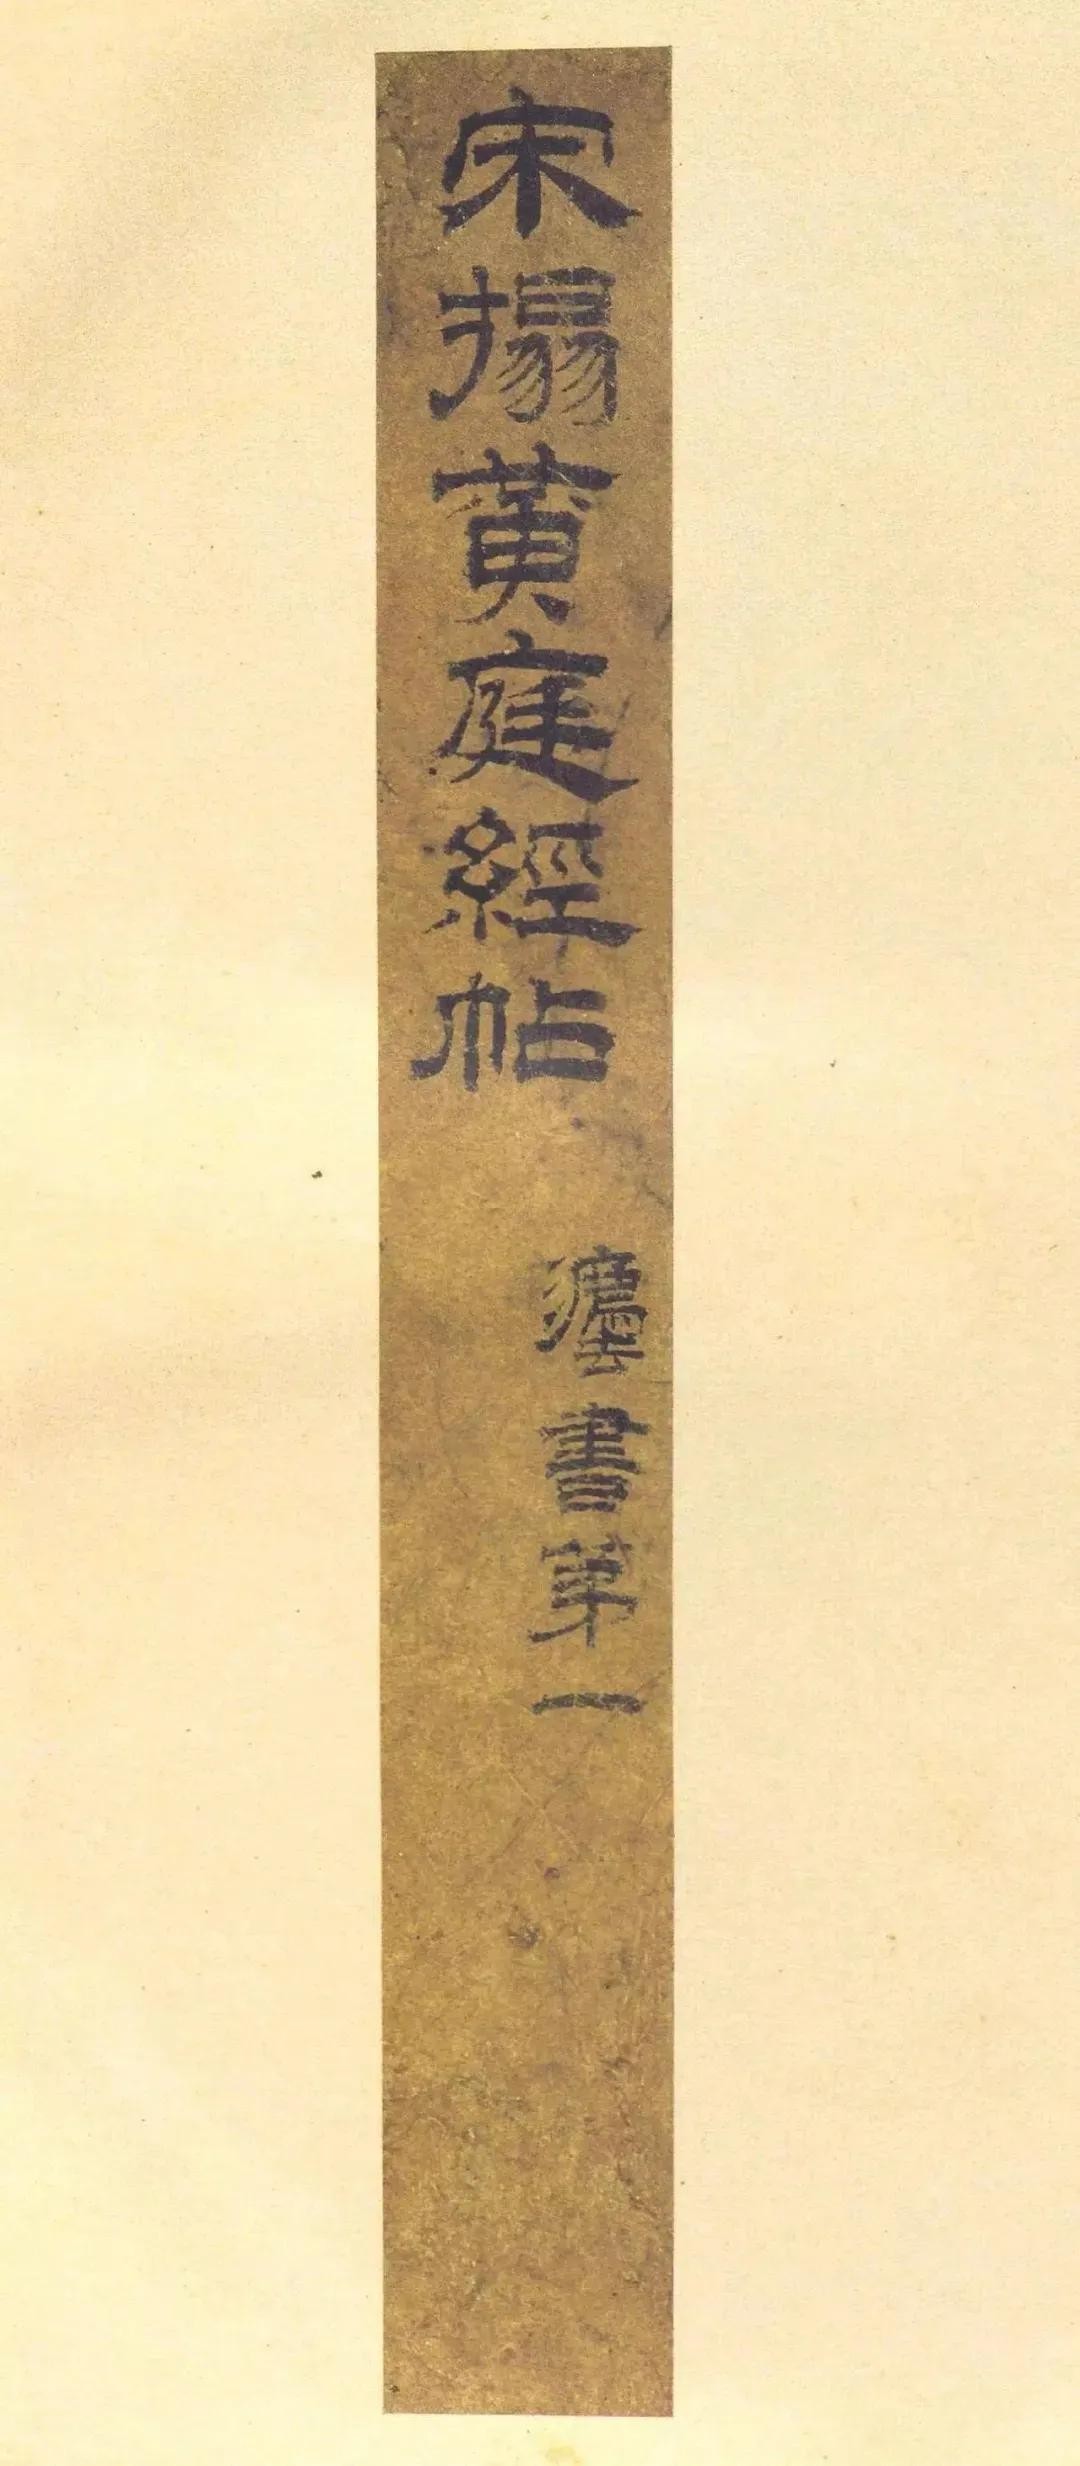 宋搨黄庭經帖
灋書苐一